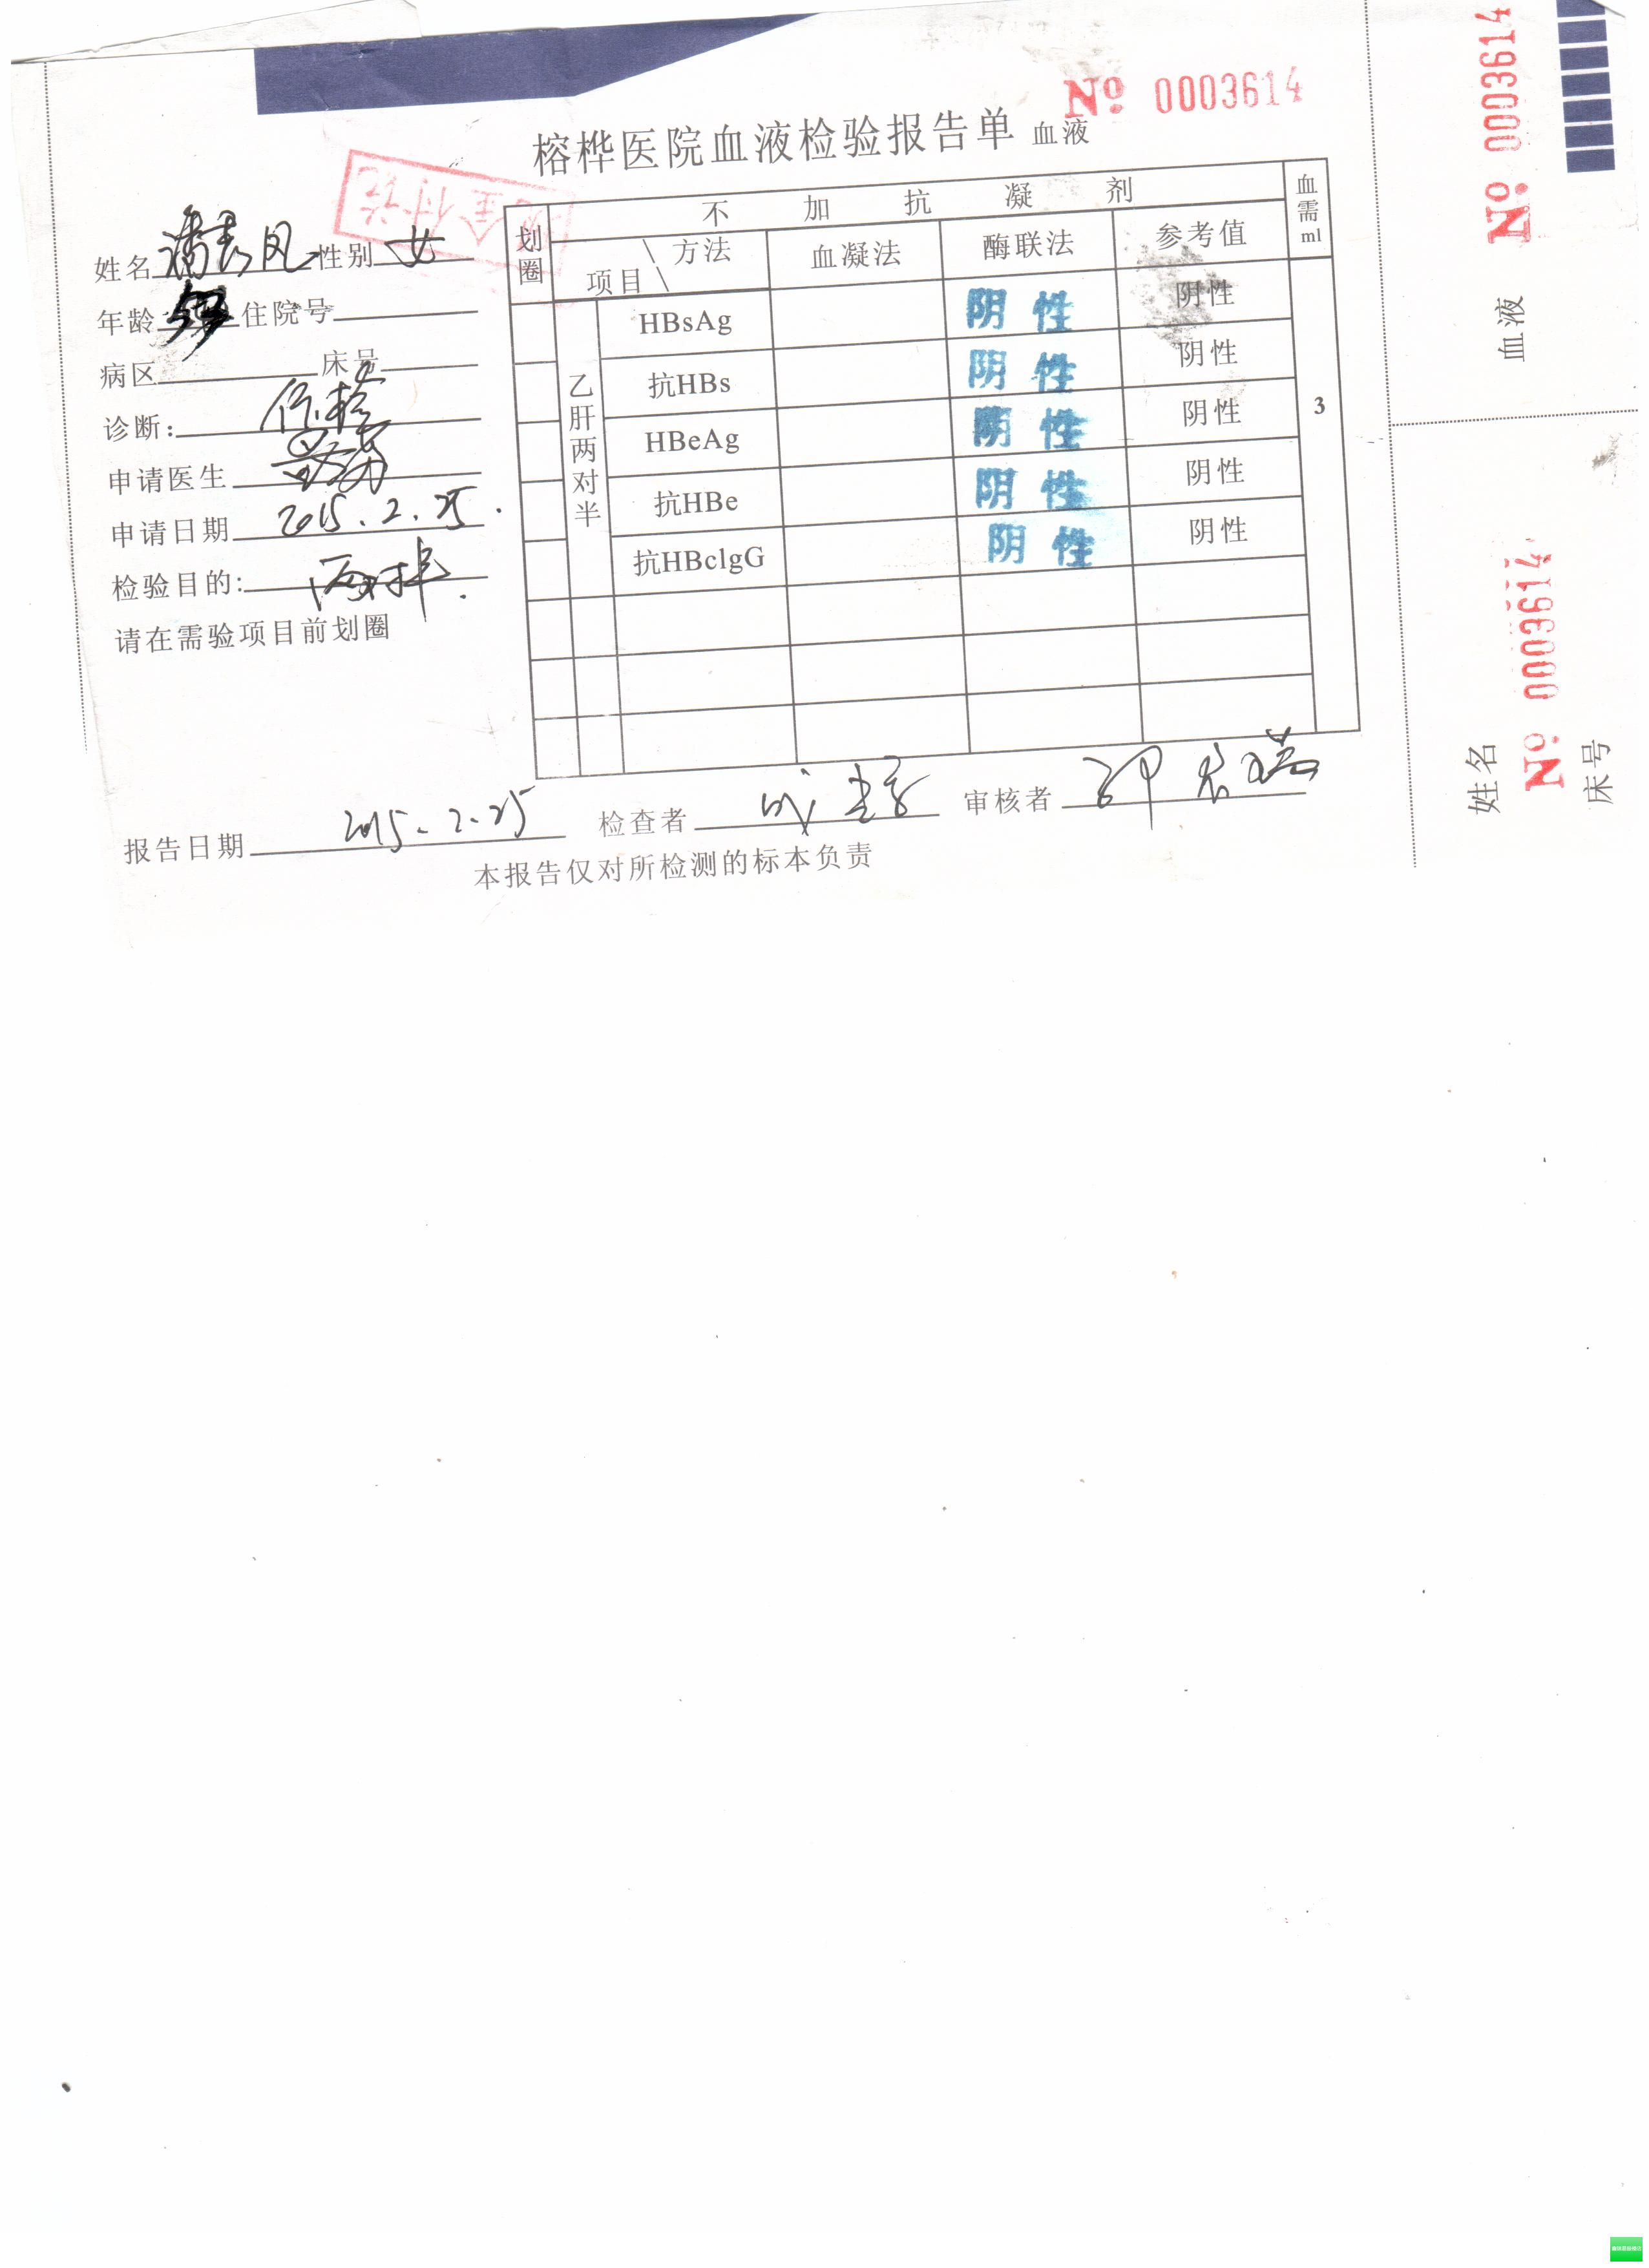 № 0003614
榕桦医院血液检验报告单 血液
姓名 性别 女
年龄 住院号
病区 床号
诊断: 体检
申请医生
申请日期 2015.2.25.
检验目的: 两对半.
请在需验项目前划圈
划圈 不加抗凝剂 血需ml
方法 项目 血凝法 酶联法 参考值
乙肝两对半
HBsAg 阴性 阴性
抗HBs 阴性 阴性
HBeAg 阴性 阴性
抗HBe 阴性 阴性
抗HBclgG 阴性 阴性
3
报告日期 2015.2.25 检查者 审核者
本报告仅对所检测的标本负责
№ 0003614
血液
姓名
№ 0003614
床号